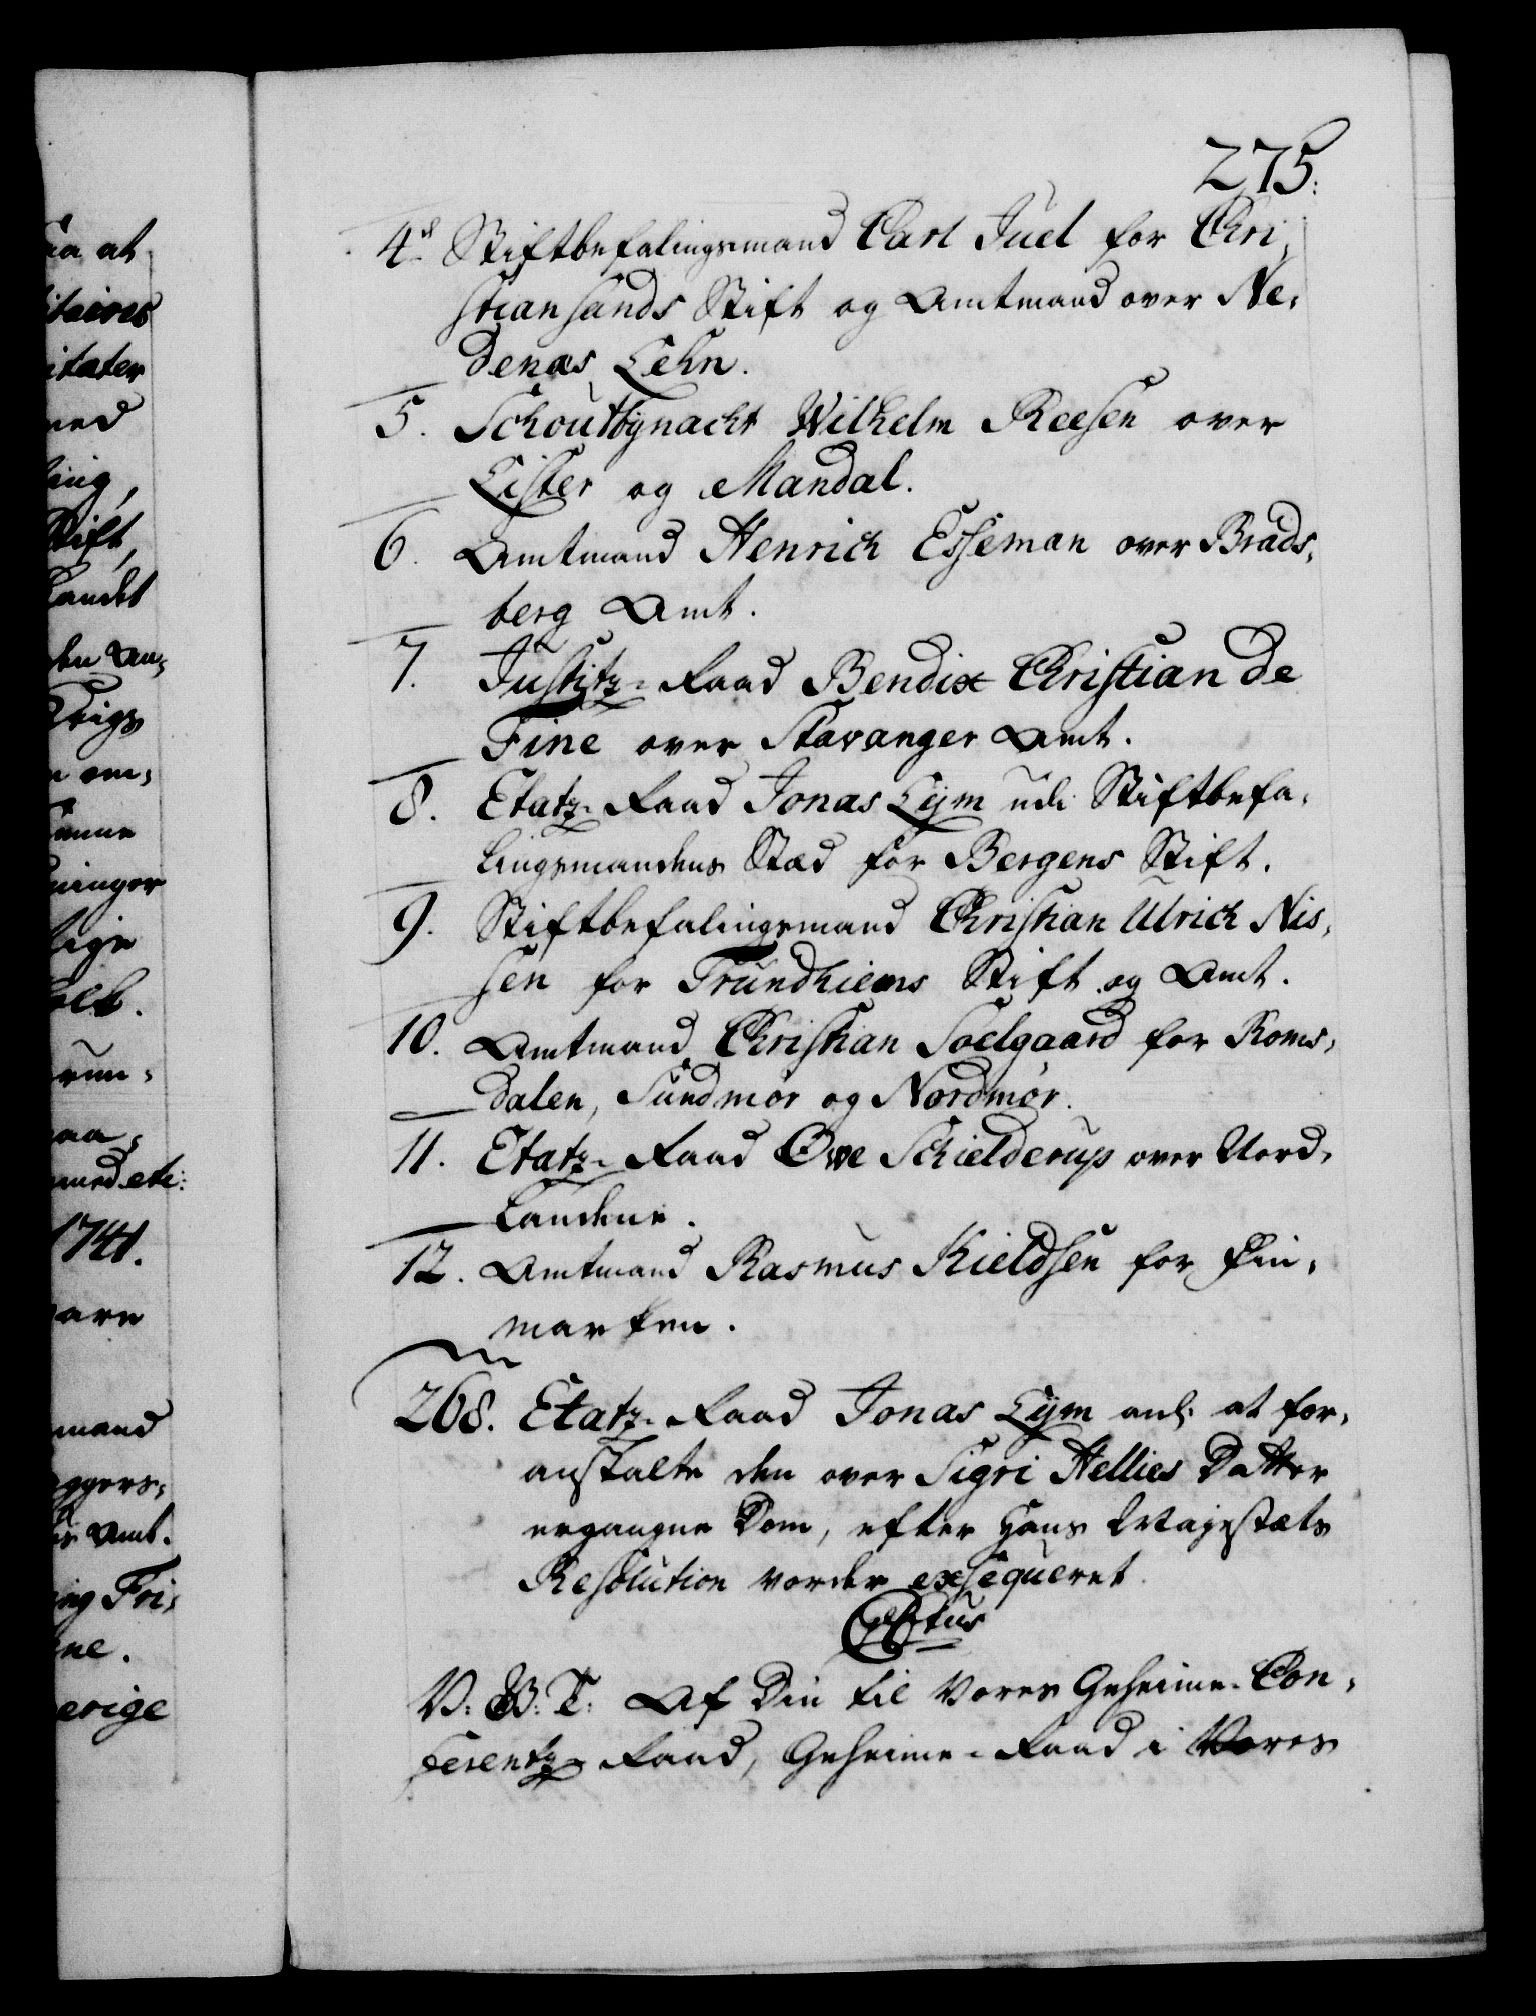 275.
4. Stiftbefalingsmand Carl Juel for Chri-
stiansands Stift og Amtmand over Ne-
denæs Lehn.
5. Schoutbynacht Wilhelm Reesen over
Lister og Mandal.
6. Amtmand Henrich Esseman over Brads-
berg Amt.
7. Justitz-Raad Bendix Christian de
Fine over Stavanger Amt.
8. Etatz-Raad Jonas Lym udi Stiftbefa-
lingsmandens Stæd for Bergens Stift.
9. Stiftbefalingsmand Christian Ulrich Nis-
sen for Trundhiems Stift og Amt.
10. Amtmand Christian Soelgaard for Roms-
dalen, Sundmør og Nordmør.
11. Etatz-Raad Ove Schielderup over Nord-
Landene.
12. Amtmand Rasmus Kieldsen for Fin-
marken.
268. Etatz-Raad Jonas Lym anl: at for-
anstalte den over Sigri Hellies Datter
ergangne Dom, efter Hans Majestæts
Resolution vorder exseqveret.
V: G: T: Af Din til Vores Geheime-Con-
ferentz-Raad, Geheime-Raad i Vores
aa at
itaires
itater
med
ling,
Stift,
Landet
den An-
n om-
ninger
lige
med etc:
1741.
mand
ggers-
Amt.
Fri-
ne.
erige